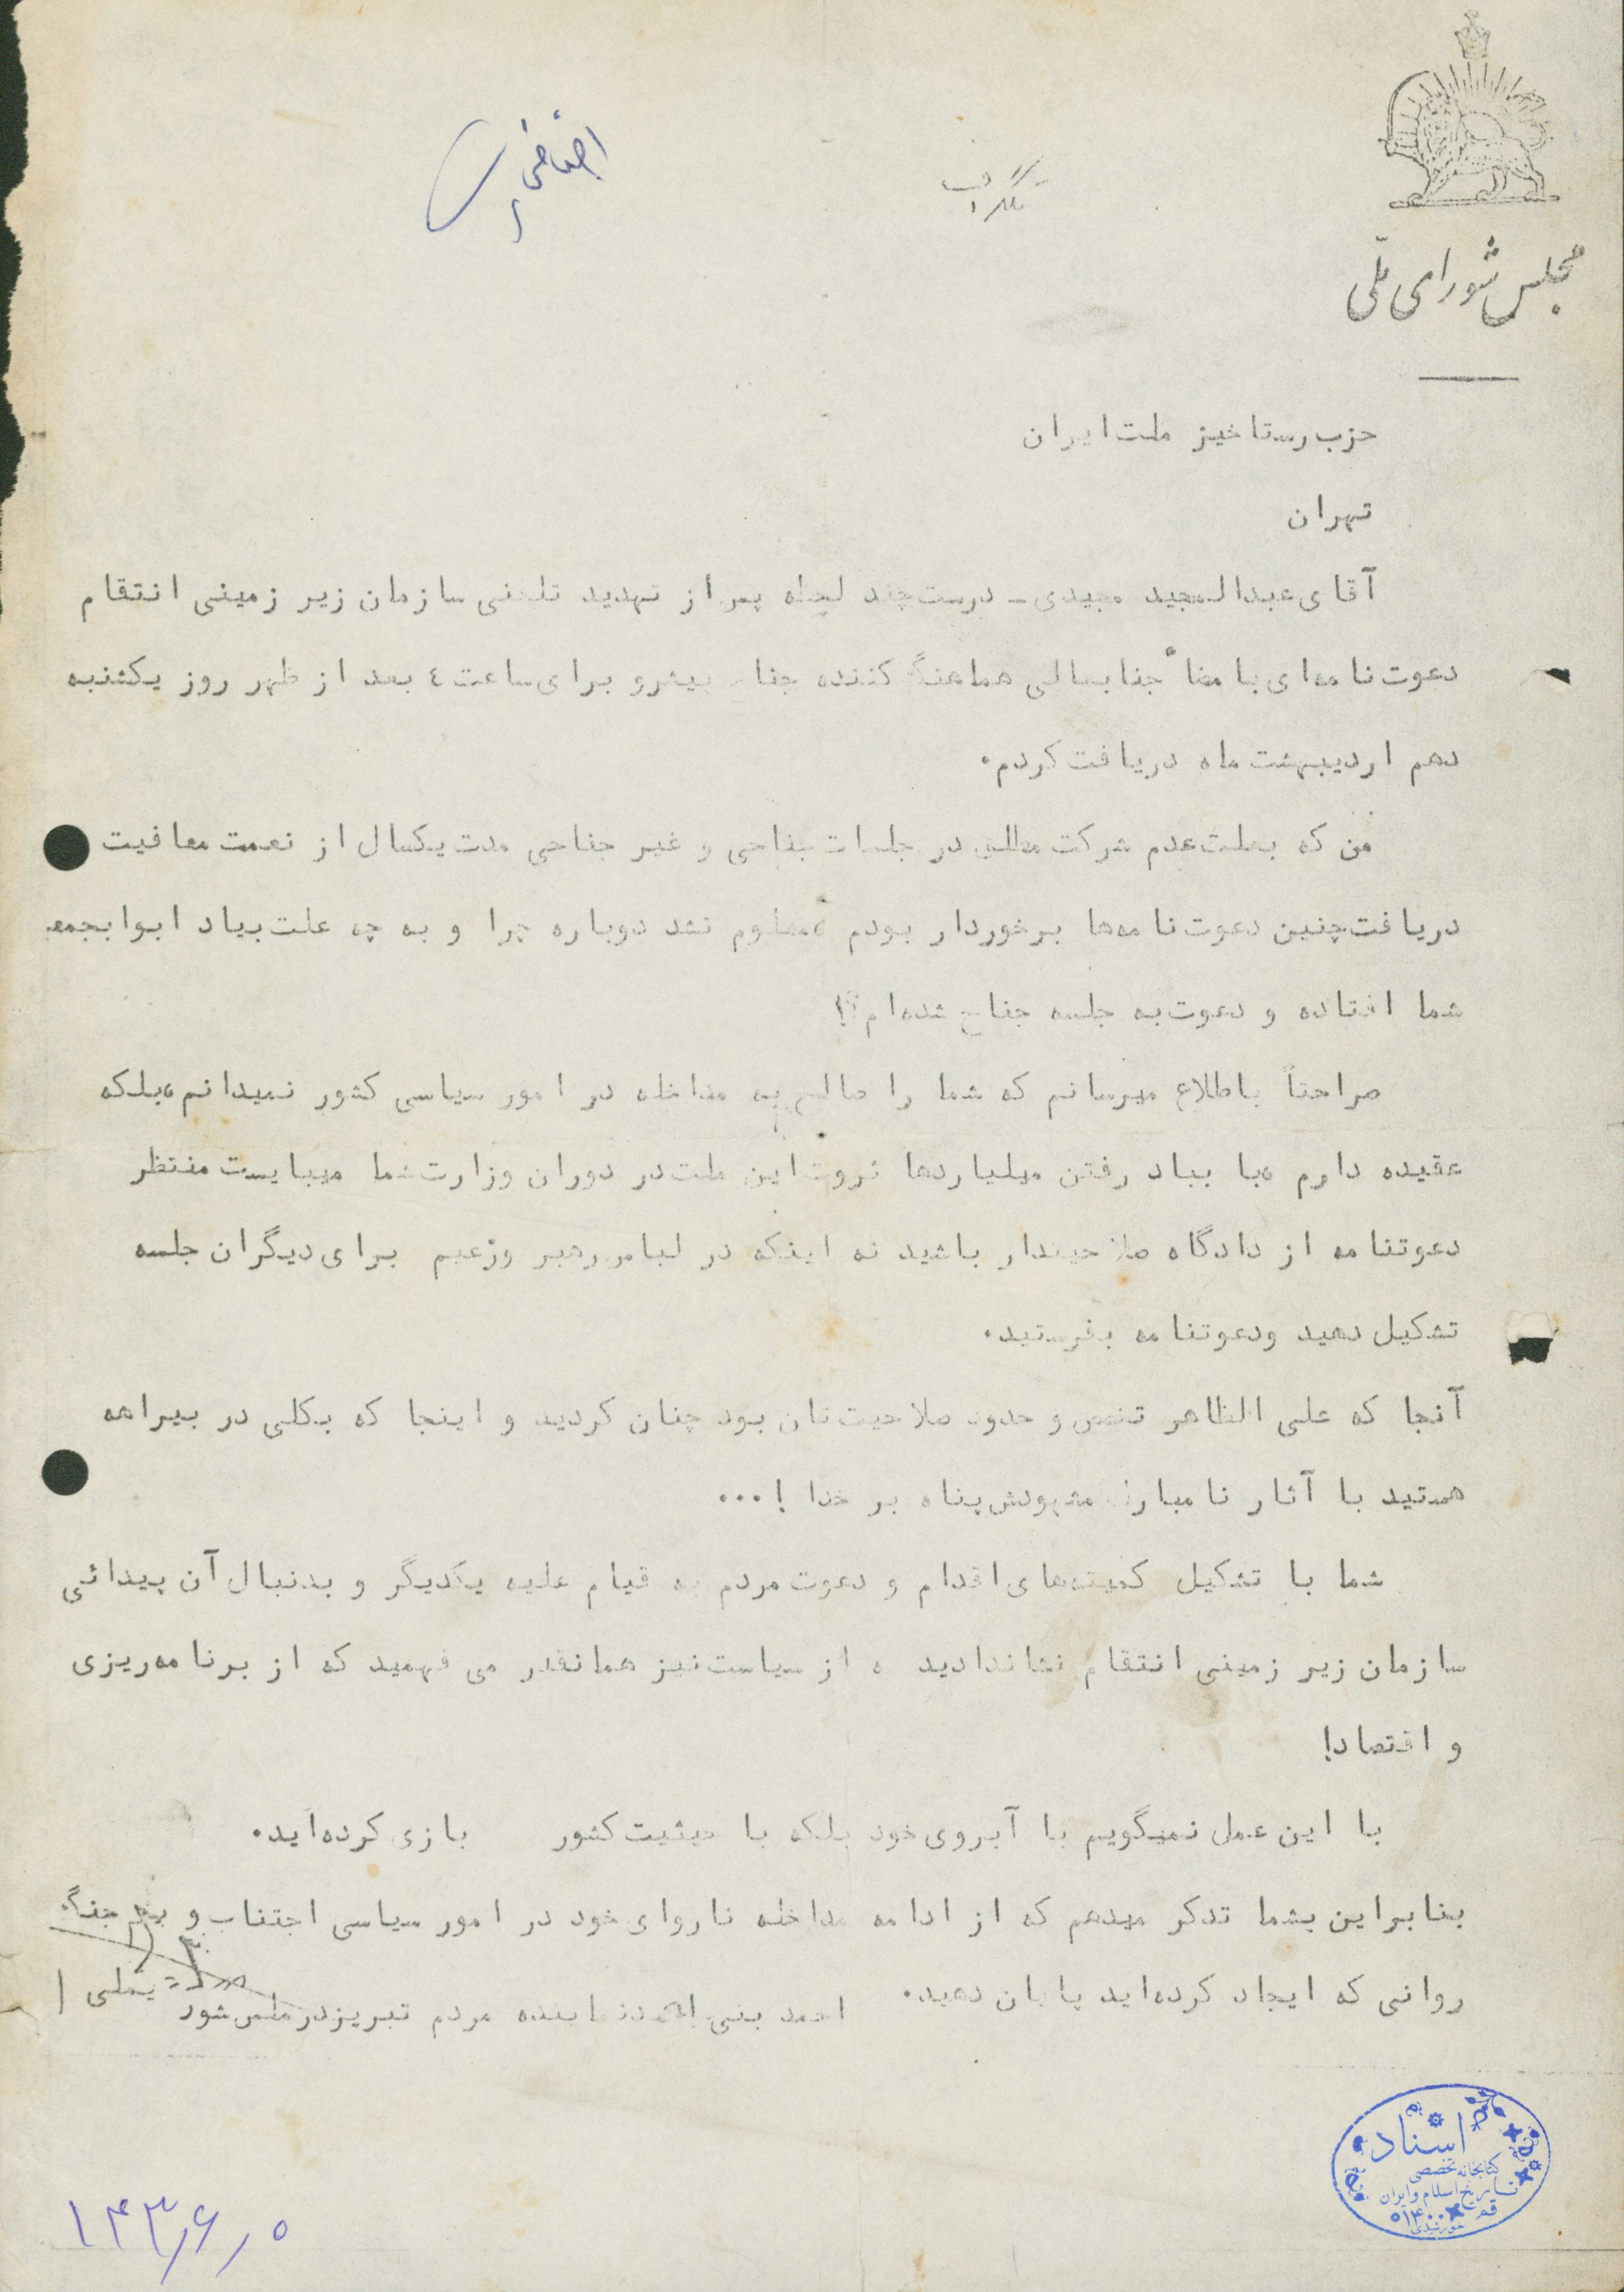 مجلس شورای ملّی
تلگراف
حزب رستاخیز ملت ایران
تهران
آقای عبدالمجید مجیدی ـ درست چند لحظه پس از تهدید تلفنی سازمان زیر زمینی انتقام
دعوت نامه‌ای با مضاٴ جنابعالی هماهنگ کننده جناح پیشرو برای ساعت ٤ بعد از ظهر روز یکشنبه
دهم اردیبهشت ماه دریافت کردم.
من که بعلت عدم شرکت مطلق در جلسات جناحی و غیر جناحی مدت یکسال از نعمت معافیت
دریافت چنین دعوت نامه‌ها برخوردار بودم ، معلوم نشد دوباره چرا و به چه علت بیاد ابوابجمعی
شما افتاده و دعوت به جلسه جناح شده‌ام؟!
صراحتاً باطلاع میرسانم که شما را صالح به مداخله در امور سیاسی کشور نمیدانم ،بلکه
عقیده دارم ،با بباد رفتن میلیاردها ثروت این ملت در دوران وزارت شما میبایست منتظر
دعوتنامه از دادگاه صلاحیتدار باشید نه اینکه در لباس رهبر وزعیم برای دیگران جلسه
تشکیل دهید ودعوتنامه بفرستید.
آنجا که علی الظاهر تخصص و حدود صلاحیت تان بود چنان کردید و اینجا که بکلی در بیراهه
هستید با آثار نامبارک مشهودش پناه بر خدا !...
شما با تشکیل کمیته‌های اقدام و دعوت مردم به قیام علیه یکدیگر و بدنبال آن پیدائی
سازمان زیر زمینی انتقام نشاندادید ، از سیاست نیز همانقدر می فهمید که از برنامه‌ریزی
و اقتصاد!
با این عمل نمیگویم با آبروی خود بلکه با حیثیت کشور بازی کرده‌اید.
بنابراین بشما تذکر میدهم که از ادامه مداخله ناروای خود در امور سیاسی اجتناب و به جنگ
روانی که ایجاد کرده‌اید پایان دهید.
احمد بنی احمد نماینده مردم تبریز در مجلس شور
اسناد
کتابخانه تخصصی
تاریخ اسلام و ایران
قم
۱۴۳۶٫۵